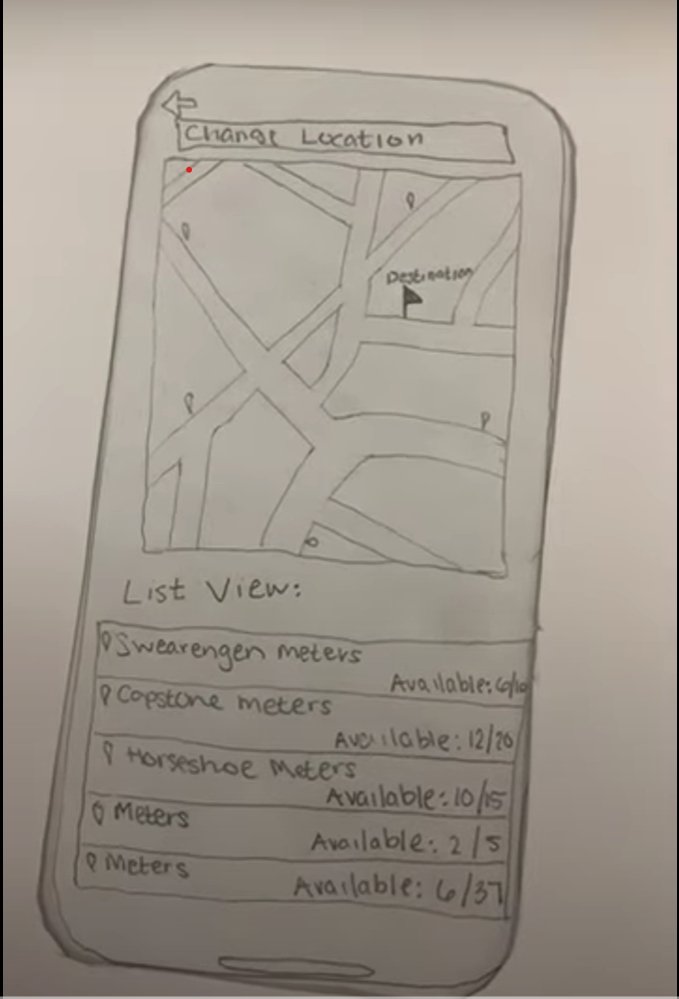 Change Location
Destination
List View:
Swearengen meters
Available: 6/10
Capstone meters
Available: 12/20
Horseshoe Meters
Available: 10/15
Meters
Available: 2/5
Meters
Available: 6/37